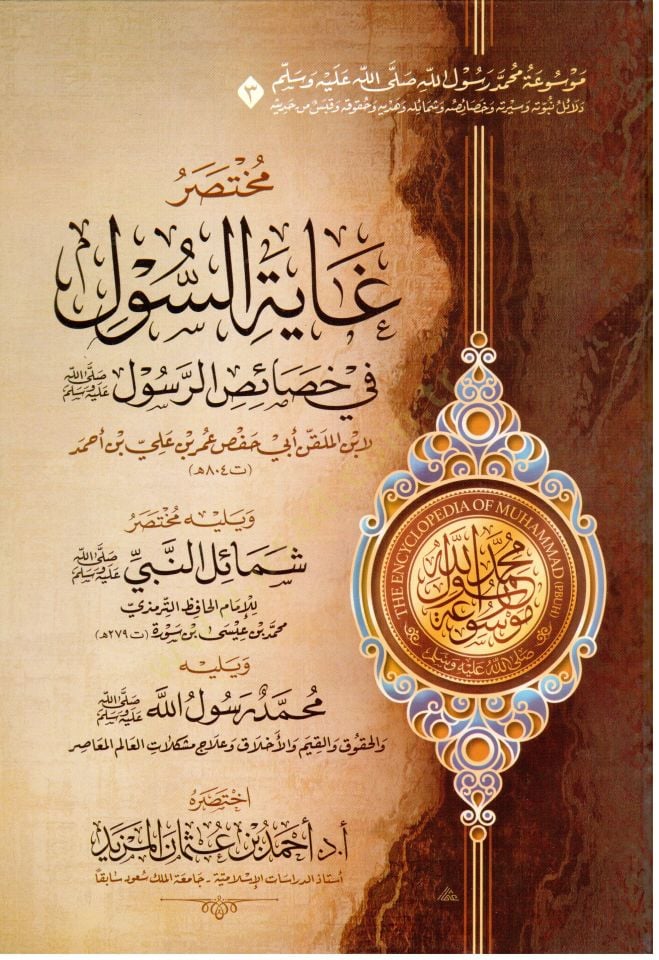 مَوْسُوعَةُ مُحَمَّد رَسُوْل اللّٰه صَلَّى اللّٰه عَلَيْه وَسَلَّم
٣
دَلَائِلُ نُبُوَّتِه وَسِيْرَتِه وَخَصَائِصِه وَشَمَائِلِه وَهَدْيِه وَحُقُوقِه وَقَبَسٌ مِن حَدِيثِه
مُخْتَصَرُ
غَايَةِ السُّوْلِ
فِي خَصَائِصِ الرَّسُوْلِ صَلَّى اللّٰهُ عَلَيْهِ وَسَلَّمَ
لابْنِ المُلَقِّن أَبِي حَفْصٍ عُمَر بْنِ عَلِيّ بْنِ أَحْمَد
(ت ٨٠٤هـ)
وَيَلِيْه مُخْتَصَرُ
شَمَائِلِ النَّبِيِّ صَلَّى اللّٰهُ عَلَيْهِ وَسَلَّمَ
لِلإِمَامِ الحَافِظِ التِّرْمِذِيّ
مُحَمَّد بْنِ عِيْسَى بْنِ سَوْرَة (ت ٢٧٩هـ)
وَيَلِيْه
مُحَمَّدٌ رَسُوْلُ اللّٰهِ صَلَّى اللّٰهُ عَلَيْهِ وَسَلَّمَ
وَالحُقُوقُ وَالقِيَمُ وَالأَخْلَاقُ وَعِلَاجُ مُشْكِلَاتِ العَالَمِ المُعَاصِرِ
اخْتَصَرَهُ
أ.د أَحْمَدُ بْنُ عُثْمَانَ المَزْيَد
أستاذ الدراسات الإسلامية - جامعة الملك سعود سابقًا
THE ENCYCLOPEDIA OF MUHAMMAD (PBUH)
موسوعة محمد رسول الله
صلى الله عليه وسلم